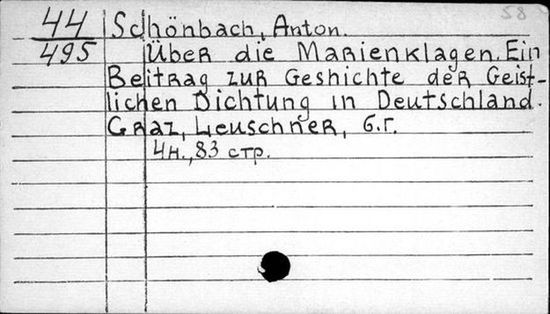 58
44 Schönbach, Anton.
495 Über die Marienklagen. Ein
Beitrag zur Geshichte der Geist-
lichen Dichtung in Deutschland.
Graz, Leuschner, б.г.
4н., 83 стр.